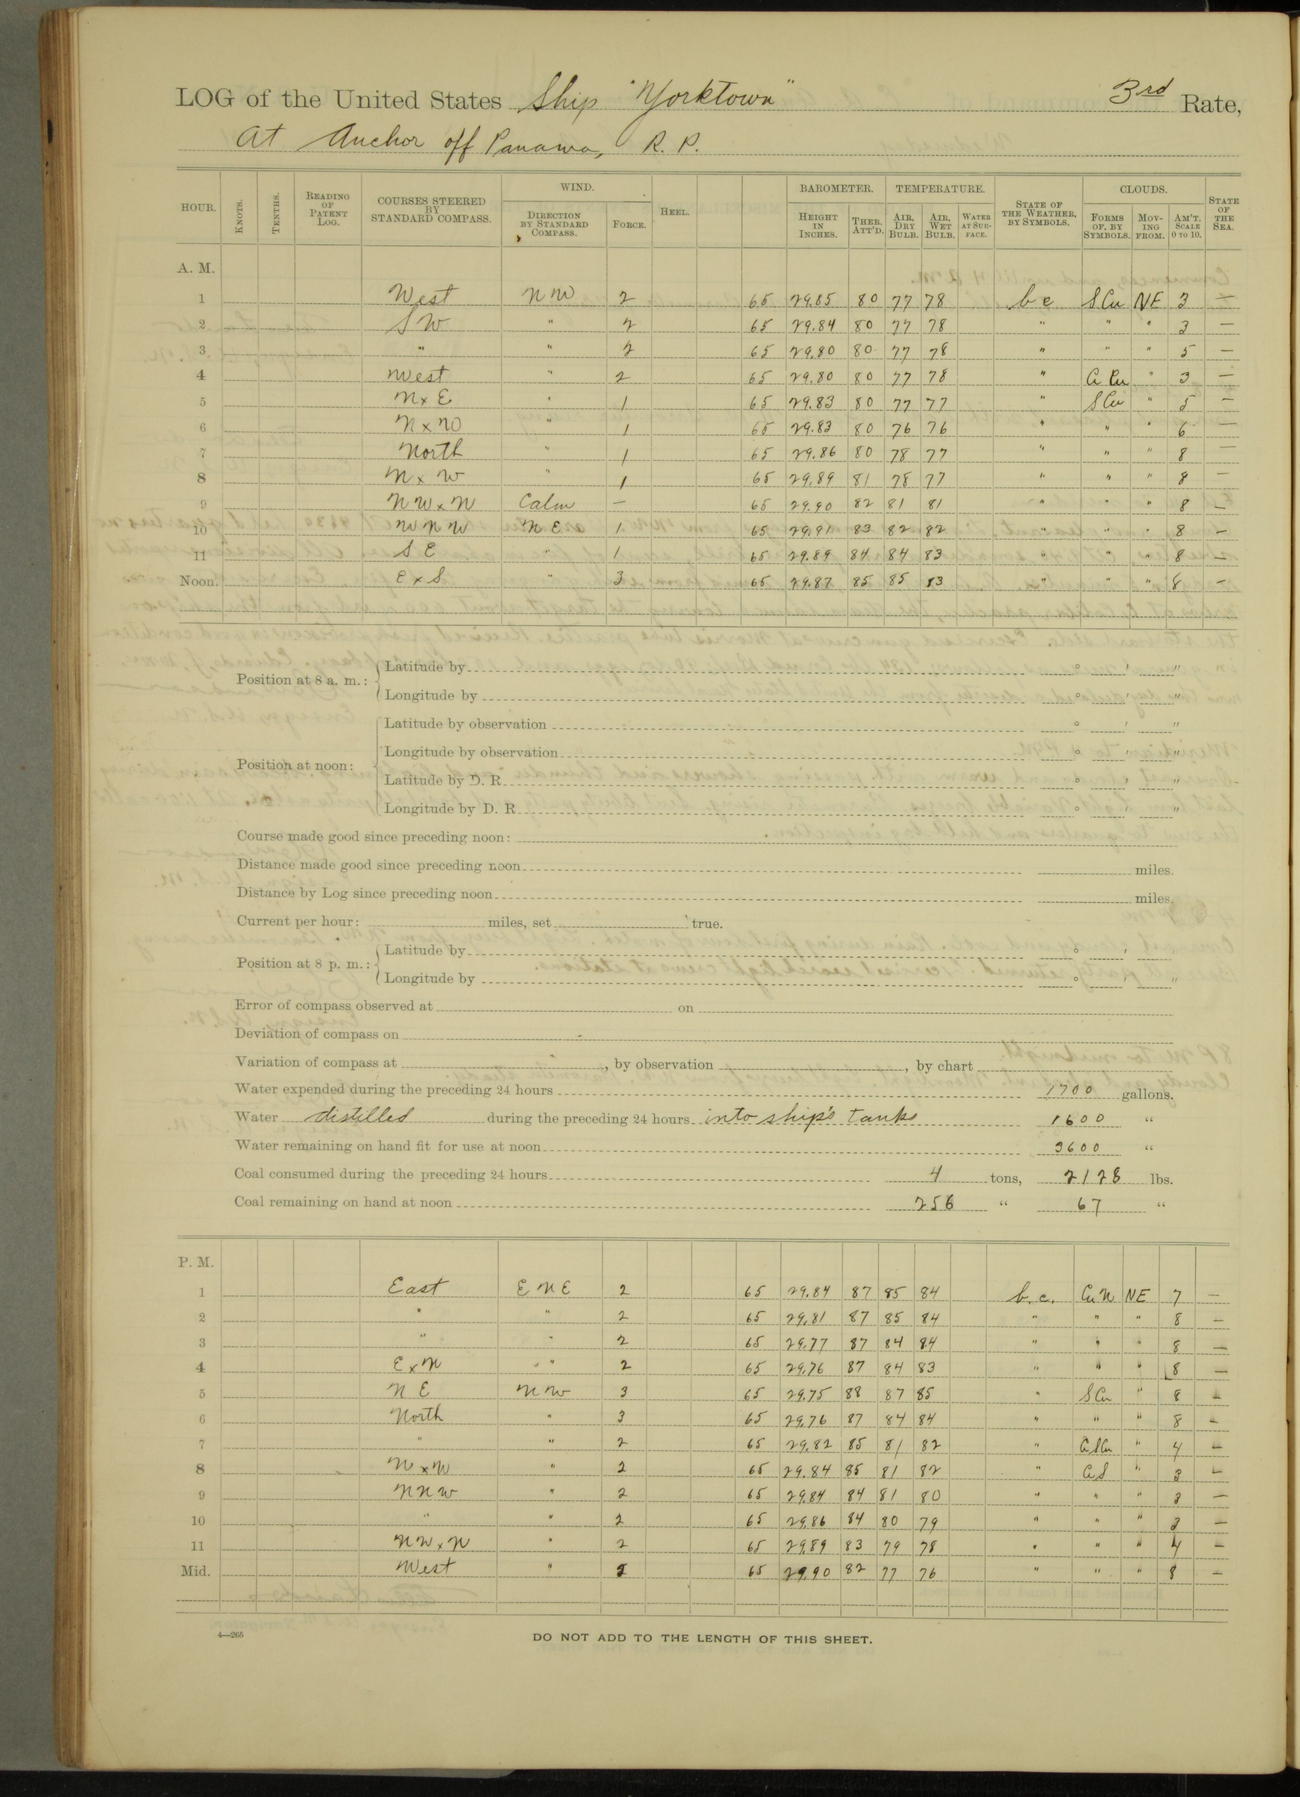 LOG of the United States Ship "Yorktown" 3rd Rate,
At Anchor off Panama, R. P.
HOUR. KNOTS. TENTHS. READING OF PATENT LOG. COURSES STEERED BY STANDARD COMPASS. WIND. DIRECTION BY STANDARD COMPASS. FORCE. HEEL. BAROMETER. HEIGHT IN INCHES. THER. ATT'D. TEMPERATURE. AIR, DRY BULB. AIR, WET BULB. WATER AT SURFACE. STATE OF THE WEATHER, BY SYMBOLS. CLOUDS. FORMS OF, BY SYMBOLS. MOVING FROM. AM'T. SCALE 0 TO 10. STATE OF THE SEA.
A. M.
1 West NW 2 65 29.85 80 77 78 b c S Cu NE 3 —
2 SW " 2 65 29.84 80 77 78 " " " 3 —
3 " " 2 65 29.80 80 77 78 " " " 5 —
4 West " 2 65 29.80 80 77 78 " " 3 —
5 N x E " 1 65 29.83 80 77 77 " S Cu " 5 —
6 N x W " 1 65 29.83 80 76 76 " " " 6 —
7 North " 1 65 29.86 80 78 77 " " " 8 —
8 N x W " 1 65 29.89 81 78 77 " " " 8 —
9 NW x N Calm — 65 29.90 82 81 81 " " " 8 —
10 WNW NE 1 65 29.91 83 82 82 " " " 8 —
11 SE " 1 65 29.89 84 84 83 " " " 8 —
Noon. E x S " 3 65 29.87 85 85 83 " " " 8 —
Position at 8 a. m.: Latitude by ° ' "
Longitude by ° ' "
Position at noon: Latitude by observation ° ' "
Longitude by observation ° ' "
Latitude by D. R. ° ' "
Longitude by D. R. ° ' "
Course made good since preceding noon:
Distance made good since preceding noon miles.
Distance by Log since preceding noon miles.
Current per hour: miles, set true.
Position at 8 p. m.: Latitude by ° ' "
Longitude by ° ' "
Error of compass observed at on
Deviation of compass on
Variation of compass at , by observation , by chart
Water expended during the preceding 24 hours 1700 gallons.
Water distilled during the preceding 24 hours into ship's tanks 1600 "
Water remaining on hand fit for use at noon 3600 "
Coal consumed during the preceding 24 hours 4 tons, 2128 lbs.
Coal remaining on hand at noon 256 " 67 "
P. M.
1 East ENE 2 65 29.84 87 85 84 b. c. Cu N NE 7 —
2 " " 2 65 29.81 87 85 84 " " " 8 —
3 " " 2 65 29.77 87 84 84 " " " 8 —
4 E x N " 2 65 29.76 87 84 83 " " " 8 —
5 NE NW 3 65 29.75 88 87 85 " S Cu " 8 —
6 North " 3 65 29.76 87 84 84 " " " 8 —
7 " " 2 65 29.82 85 81 82 " C S Cu " 4 —
8 N x W " 2 65 29.84 85 81 82 " C S " 3 —
9 NNW " 2 65 29.84 84 81 80 " " " 3 —
10 " " 2 65 29.86 84 80 79 " " " 3 —
11 NW x N " 2 65 29.89 83 79 78 " " " 4 —
Mid. West " 65 29.90 82 77 76 " " " 8 —
4—265
DO NOT ADD TO THE LENGTH OF THIS SHEET.